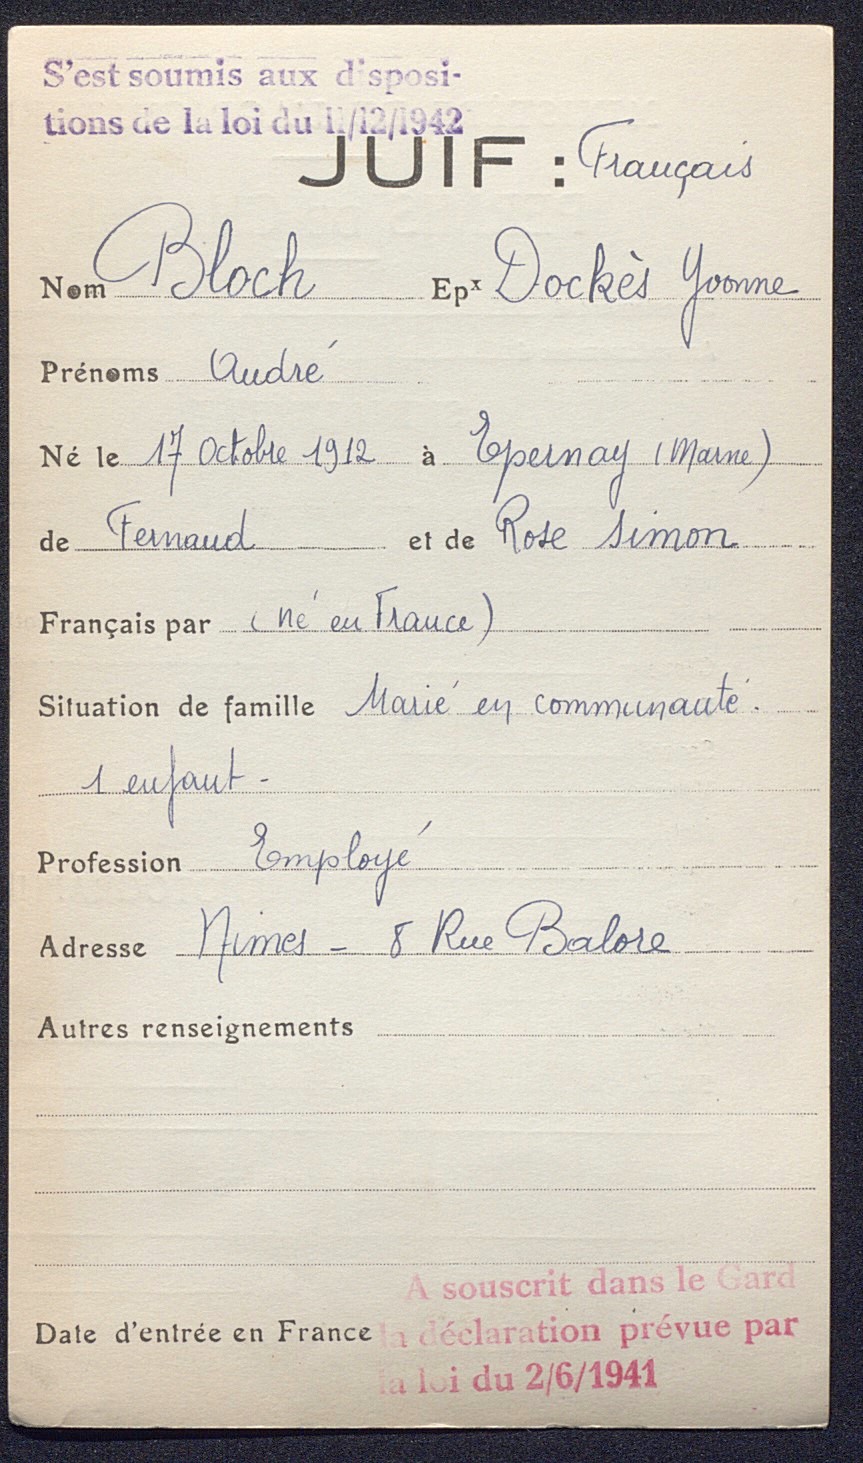 S'est soumis aux disposi-
tions de la loi du 11/12/1942
JUIF : Français
Nom Bloch Epx Dockès Yvonne
Prénoms André
Né le 17 Octobre 1912 à Epernay (Marne)
de Fernand et de Rose Simon
Français par (né en France)
Situation de famille Marié en communauté.
1 enfant -
Profession Employé
Adresse Nimes - 8 Rue Balore
Autres renseignements
A souscrit dans le Gard
Date d'entrée en France la déclaration prévue par
la loi du 2/6/1941